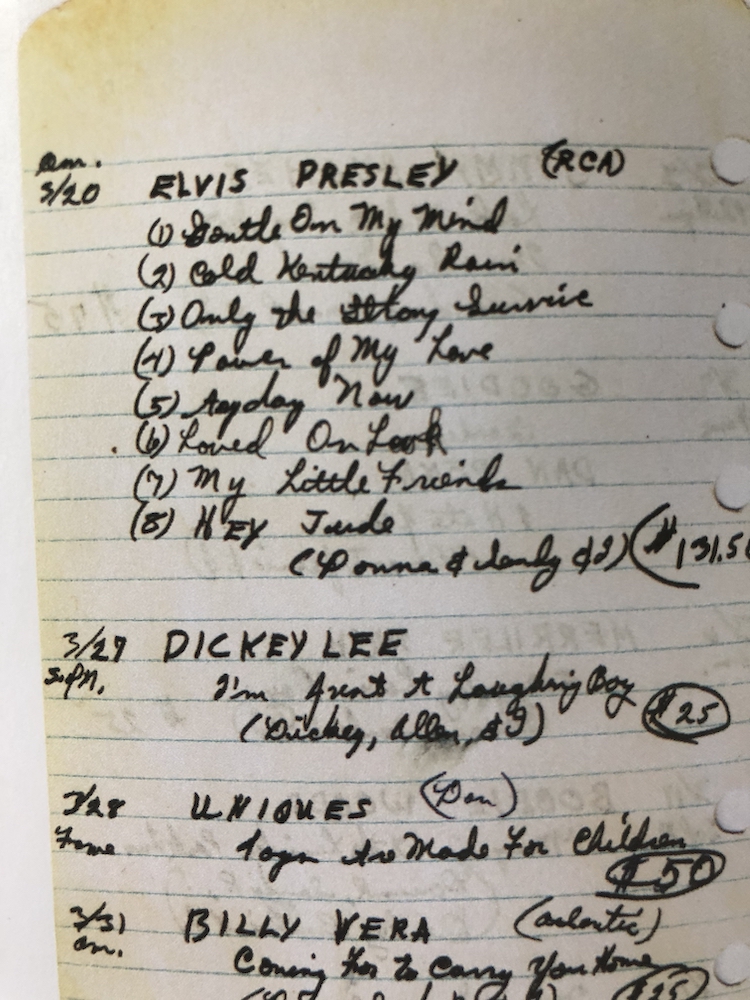 Am.
3/20 ELVIS PRESLEY (RCA)
(1) Gentle On My Mind
(2) Cold Kentucky Rain
(3) Only the Strong Survive
(4) Power of My Love
(5) Anyday Now
(6) Loved On Look
(7) My Little Friend
(8) HEY Jude
(Donna & Sandy & I) ($131.50
3/27 DICKEY LEE
I'm Just A Laughing Boy
(Dickey, Allen, & I) $25
3/28 UNIQUES (Don)
Fame Toys Are Made For Children
$50
3/31 BILLY VERA (Atlantic)
Am. Coming For To Carry You Home
$25